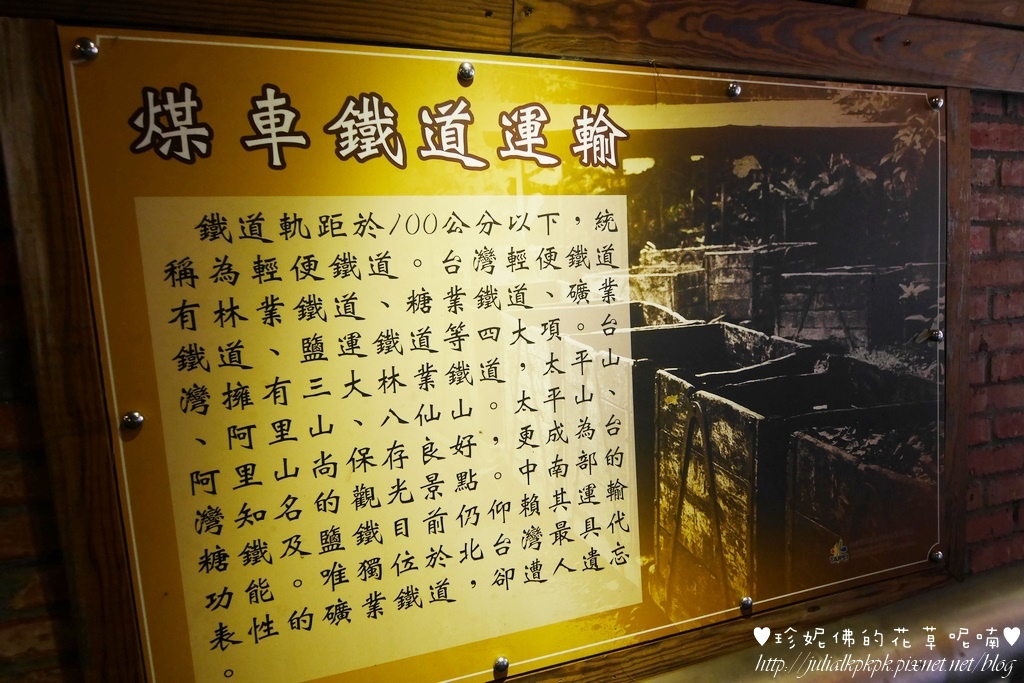 煤車鐵道運輸
鐵道軌距於100公分以下，統
稱為輕便鐵道。台灣輕便鐵道
有林業鐵道、糖業鐵道、礦業
鐵道、鹽運鐵道等四大項。台
灣擁有三大林業鐵道，太平山
、阿里山、八仙山。太平山、
阿里山尚保存良好，更成為台
灣知名的觀光景點。中南部的
糖鐵及鹽鐵目前仍仰賴其運輸
功能。唯獨位於北台灣最具代
表性的礦業鐵道，卻遭人遺忘
。
♥珍妮佛的花草呢喃♥
http://julialkpkpk.pixnet.net/blog